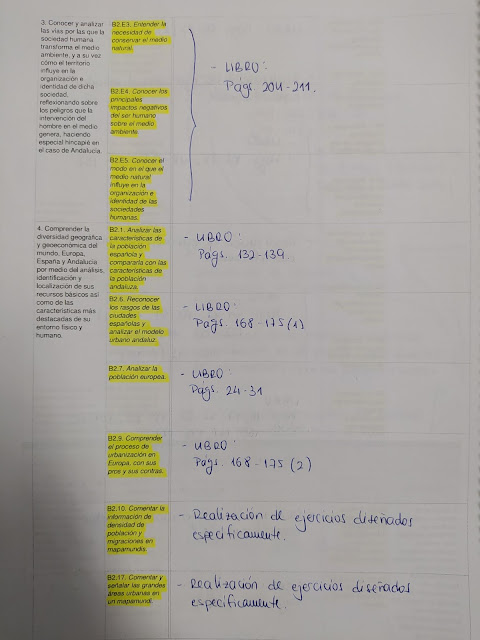 3. Conocer y analizar
las vías por las que la
sociedad humana
transforma el medio
ambiente, y a su vez
cómo el territorio
influye en la
organización e
identidad de dicha
sociedad,
reflexionando sobre
los peligros que la
intervención del
hombre en el medio
genera, haciendo
especial hincapié en
el caso de Andalucía.
B2.E3. Entender la
necesidad de
conservar el medio
natural.
B2.E4: Conocer los
principales
impactos negativos
del ser humano
sobre el medio
ambiente.
B2.E5. Conocer el
modo en el que el
medio natural
influye en la
organización e
identidad de las
sociedades
humanas.
- LIBRO:
Págs. 204-211.
4. Comprender la
diversidad geográfica
y geoeconómica del
mundo, Europa,
España y Andalucía
por medio del análisis,
identificación y
localización de sus
recursos básicos así
como de las
características más
destacadas de su
entorno físico y
humano.
B2.1. Analizar las
características de
la población
española y
compararla con las
características de
la población
andaluza.
- LIBRO:
Págs. 132-139.
B2.6. Reconocer
los rasgos de las
ciudades
españolas y
analizar el modelo
urbano andaluz.
- LIBRO:
Págs. 168-175 (1)
B2.7. Analizar la
población europea.
- LIBRO:
Págs. 24-31
B2.9. Comprender
el proceso de
urbanización en
Europa, con sus
pros y sus contras.
- LIBRO:
Págs. 168-175 (2)
B2.10. Comentar la
información de
densidad de
población y
migraciones en
mapamundis.
- Realización de ejercicios diseñados
específicamente.
B2.17. Comentar y
señalar las grandes
áreas urbanas en
un mapamundi.
- Realización de ejercicios diseñados
específicamente.